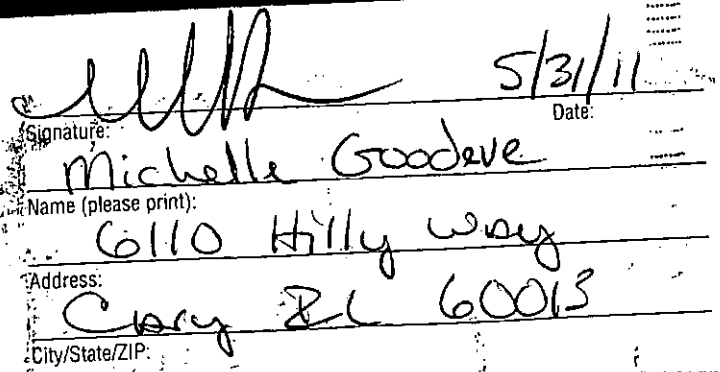 5/31/11
Signature: Date:
Michelle Goodeve
Name (please print):
6110 Hilly Way
Address:
Cary IL 60013
City/State/ZIP: